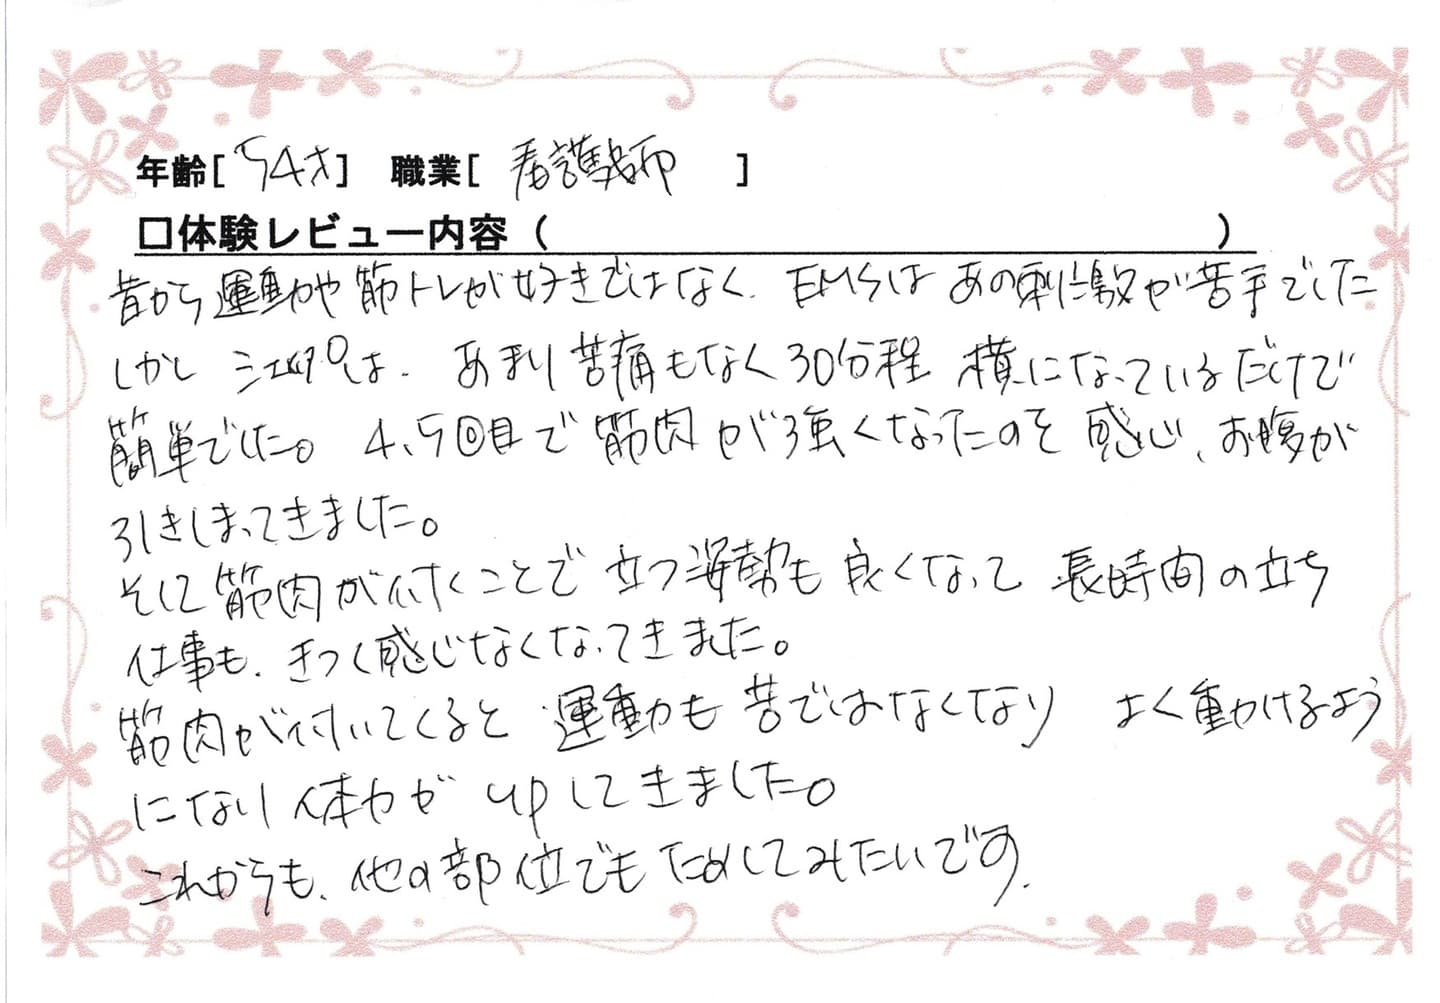 年齢[54才] 職業[看護師]
□体験レビュー内容（ ）
昔から運動や筋トレが好きではなく、EMSはあの刺激が苦手でした
しかし は、あまり苦痛もなく30分程 横になっているだけで
簡単でした。4、5回目で筋肉が強くなったのを感じ、お腹が
引きしまってきました。
そして筋肉が付くことで立つ姿勢も良くなって長時間の立ち
仕事も、きつく感じなくなってきました。
筋肉が付いてくると運動も苦ではなくなり よく動けるよう
になり体力がupしてきました。
これからも、他の部位でもためしてみたいです。